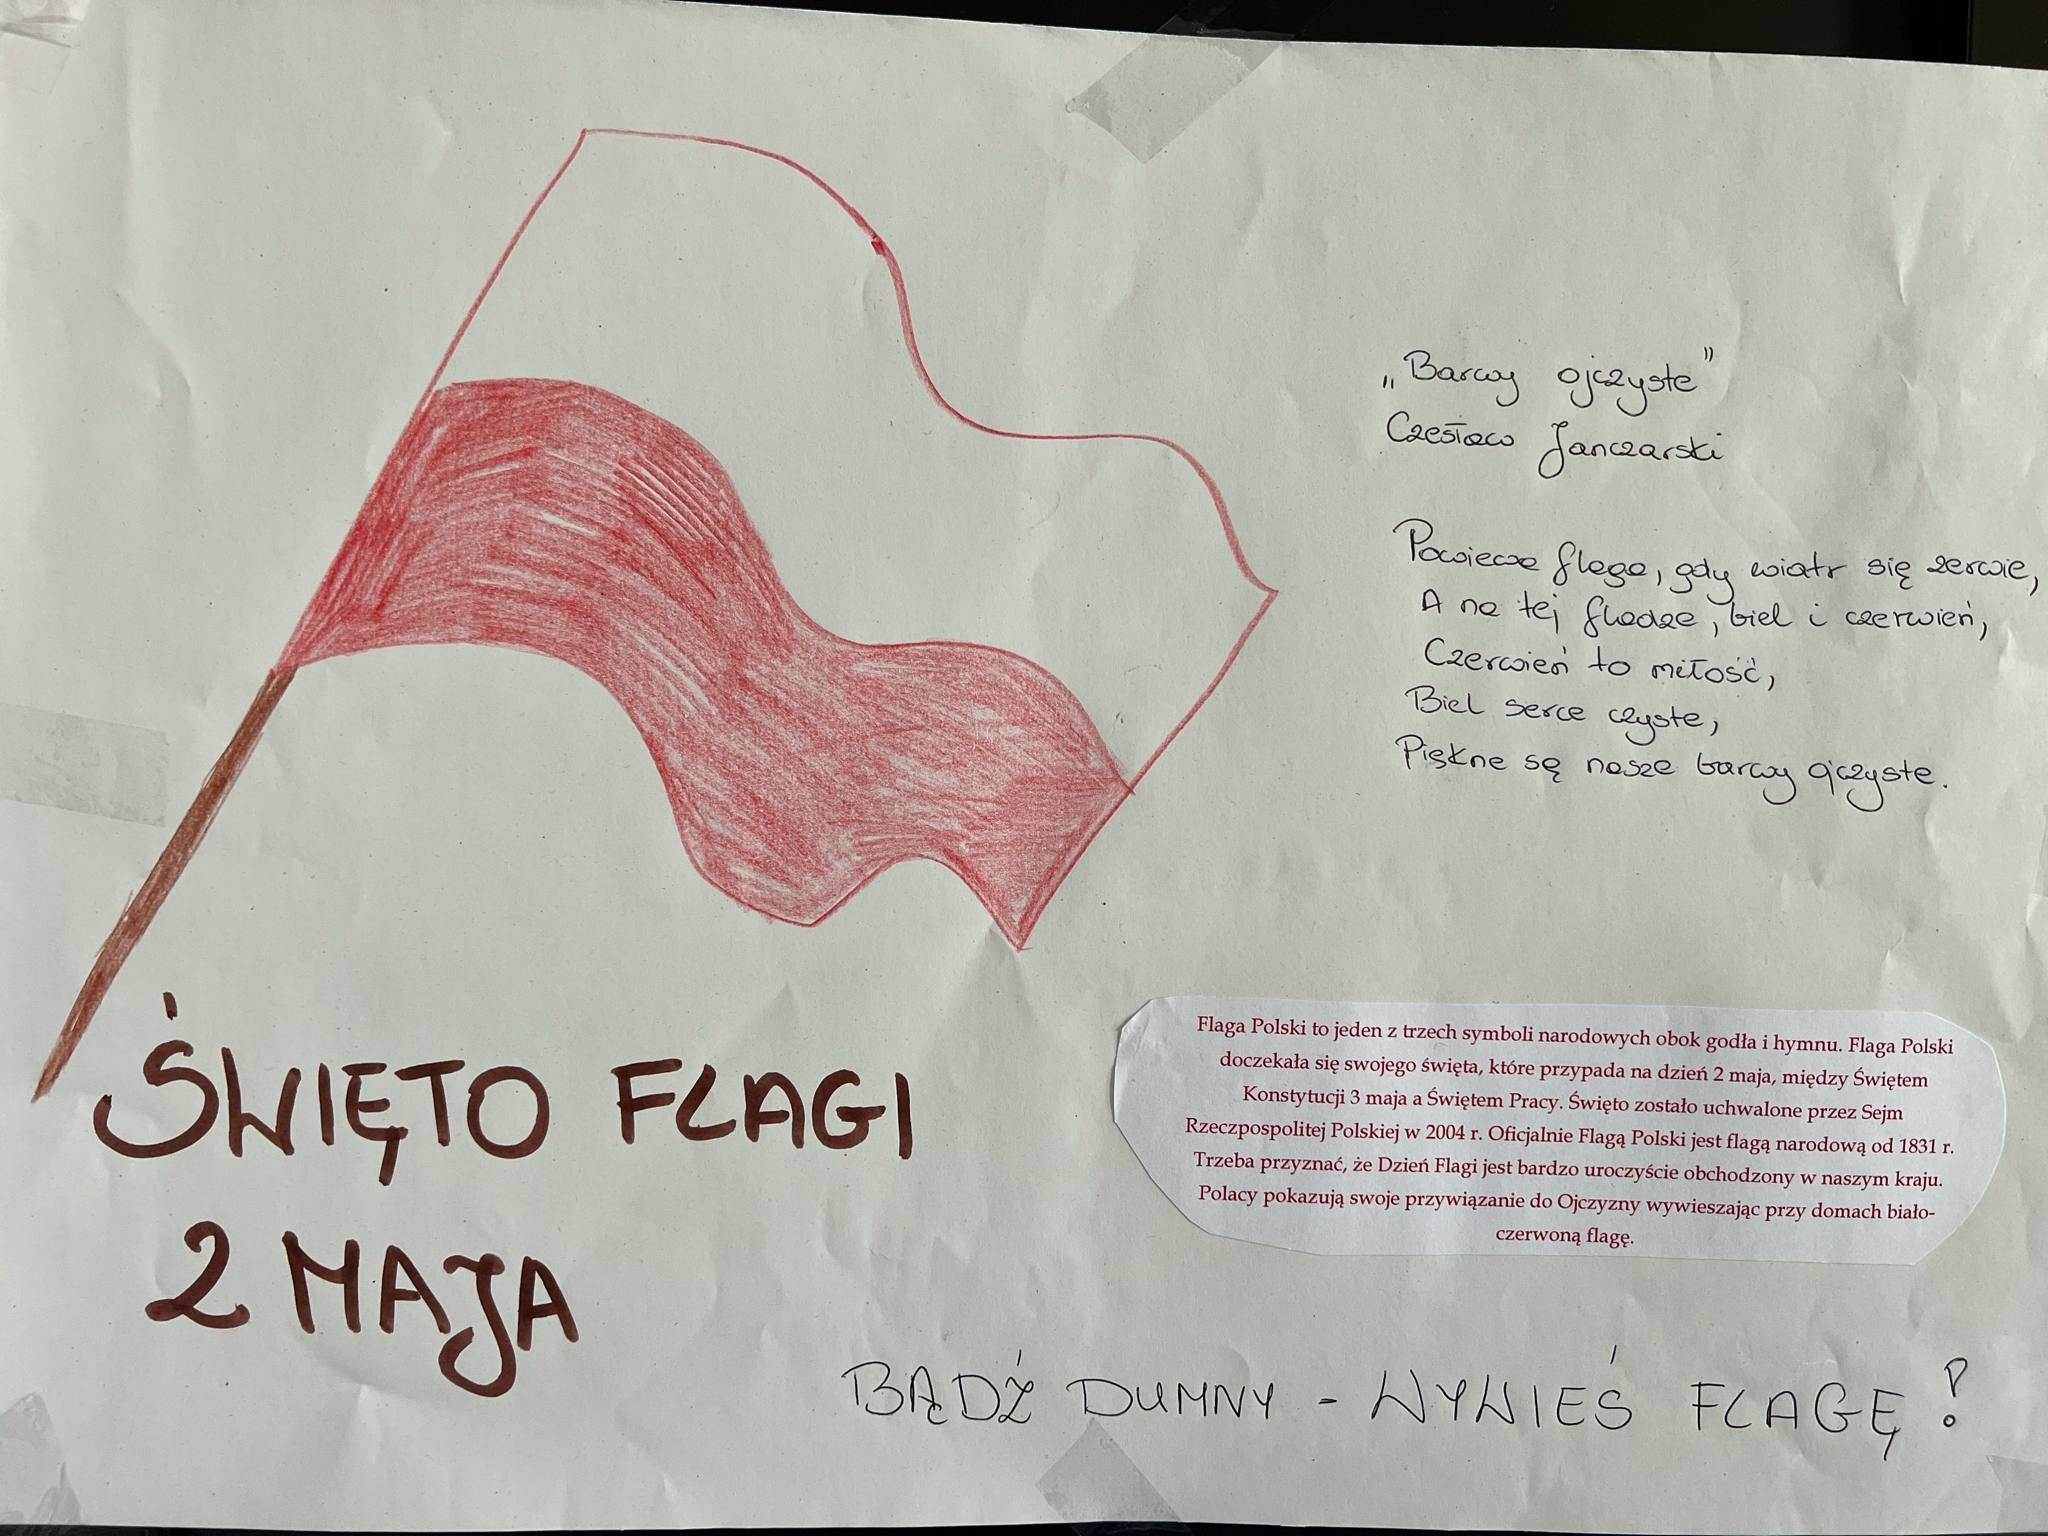 „Barwy ojczyste”
Czesław Janczarski
Powiewa flaga, gdy wiatr się zerwie,
A na tej fladze, biel i czerwień,
Czerwień to miłość,
Biel serce czyste,
Piękne są nasze barwy ojczyste.
ŚWIĘTO FLAGI
2 MAJA
Flaga Polski to jeden z trzech symboli narodowych obok godła i hymnu. Flaga Polski
doczekała się swojego święta, które przypada na dzień 2 maja, między Świętem
Konstytucji 3 maja a Świętem Pracy. Święto zostało uchwalone przez Sejm
Rzeczpospolitej Polskiej w 2004 r. Oficjalnie Flagą Polski jest flagą narodową od 1831 r.
Trzeba przyznać, że Dzień Flagi jest bardzo uroczyście obchodzony w naszym kraju.
Polacy pokazują swoje przywiązanie do Ojczyzny wywieszając przy domach biało-
czerwoną flagę.
BĄDŹ DUMNY - WYWIEŚ FLAGĘ!